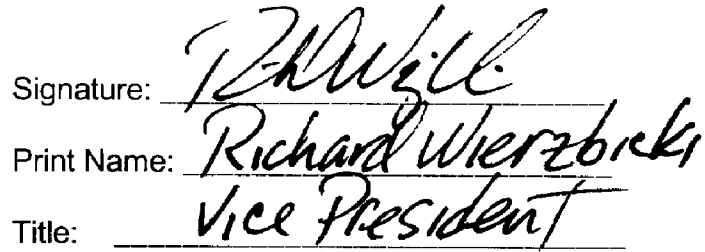 Signature:
Print Name: Richard Wierzbicki
Title: Vice President